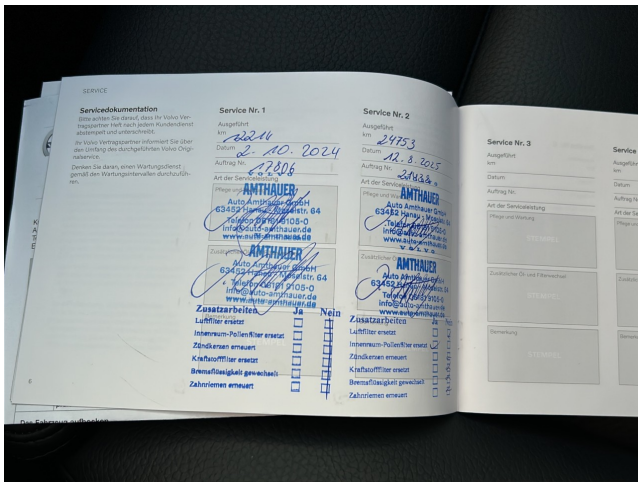 SERVICE
Servicedokumentation
Bitte achten Sie darauf, dass Ihr Volvo Ver-
tragspartner Heft nach jedem Kundendienst
abstempelt und unterschreibt.
Ihr Volvo Vertragspartner informiert Sie über
den Umfang des durchgeführten Volvo Origi-
nalservice.
Denken Sie daran, einen Wartungsdienst
gemäß den Wartungsintervallen durchzufüh-
ren.
6
Service Nr. 1
Ausgeführt
km 12214
Datum 2. 10. 2024
Auftrag Nr. 17806
VOLVO
Art der Serviceleistung
AMTHAUER
Auto Amthauer GmbH
63452 Hanau · Moselstr. 64
Telefon 06181 9105-0
info@auto-amthauer.de
www.auto-amthauer.de
AMTHAUER
Auto Amthauer GmbH
63452 Hanau · Moselstr. 64
Telefon 06181 9105-0
info@auto-amthauer.de
www.auto-amthauer.de
Bemerkung
Zusatzarbeiten Ja Nein
Luftfilter ersetzt
Innenraum-Pollenfilter ersetzt
Zündkerzen erneuert
Kraftstofffilter ersetzt
Bremsflüssigkeit gewechselt
Zahnriemen erneuert
Service Nr. 2
Ausgeführt
km 24753
Datum 12. 8. 2025
Auftrag Nr.
Art der Serviceleistung
AMTHAUER
Auto Amthauer GmbH
63452 Hanau · Moselstr. 64
Telefon 06181 9105-0
info@auto-amthauer.de
www.auto-amthauer.de
VOLVO
AMTHAUER
Auto Amthauer GmbH
63452 Hanau · Moselstr. 64
Telefon 06181 9105-0
info@auto-amthauer.de
www.auto-amthauer.de
Zusatzarbeiten Ja
Luftfilter ersetzt
Innenraum-Pollenfilter ersetzt
Zündkerzen erneuert
Kraftstofffilter ersetzt
Bremsflüssigkeit gewechselt
Zahnriemen erneuert
Service Nr. 3
Ausgeführt
km
Datum
Auftrag Nr.
Art der Serviceleistung
Pflege und Wartung
STEMPEL
Zusätzlicher Öl- und Filterwechsel
STEMPEL
Bemerkung
STEMPEL
Service
Ausgeführt
km
Datum
Das Fahrzeug aufbocken